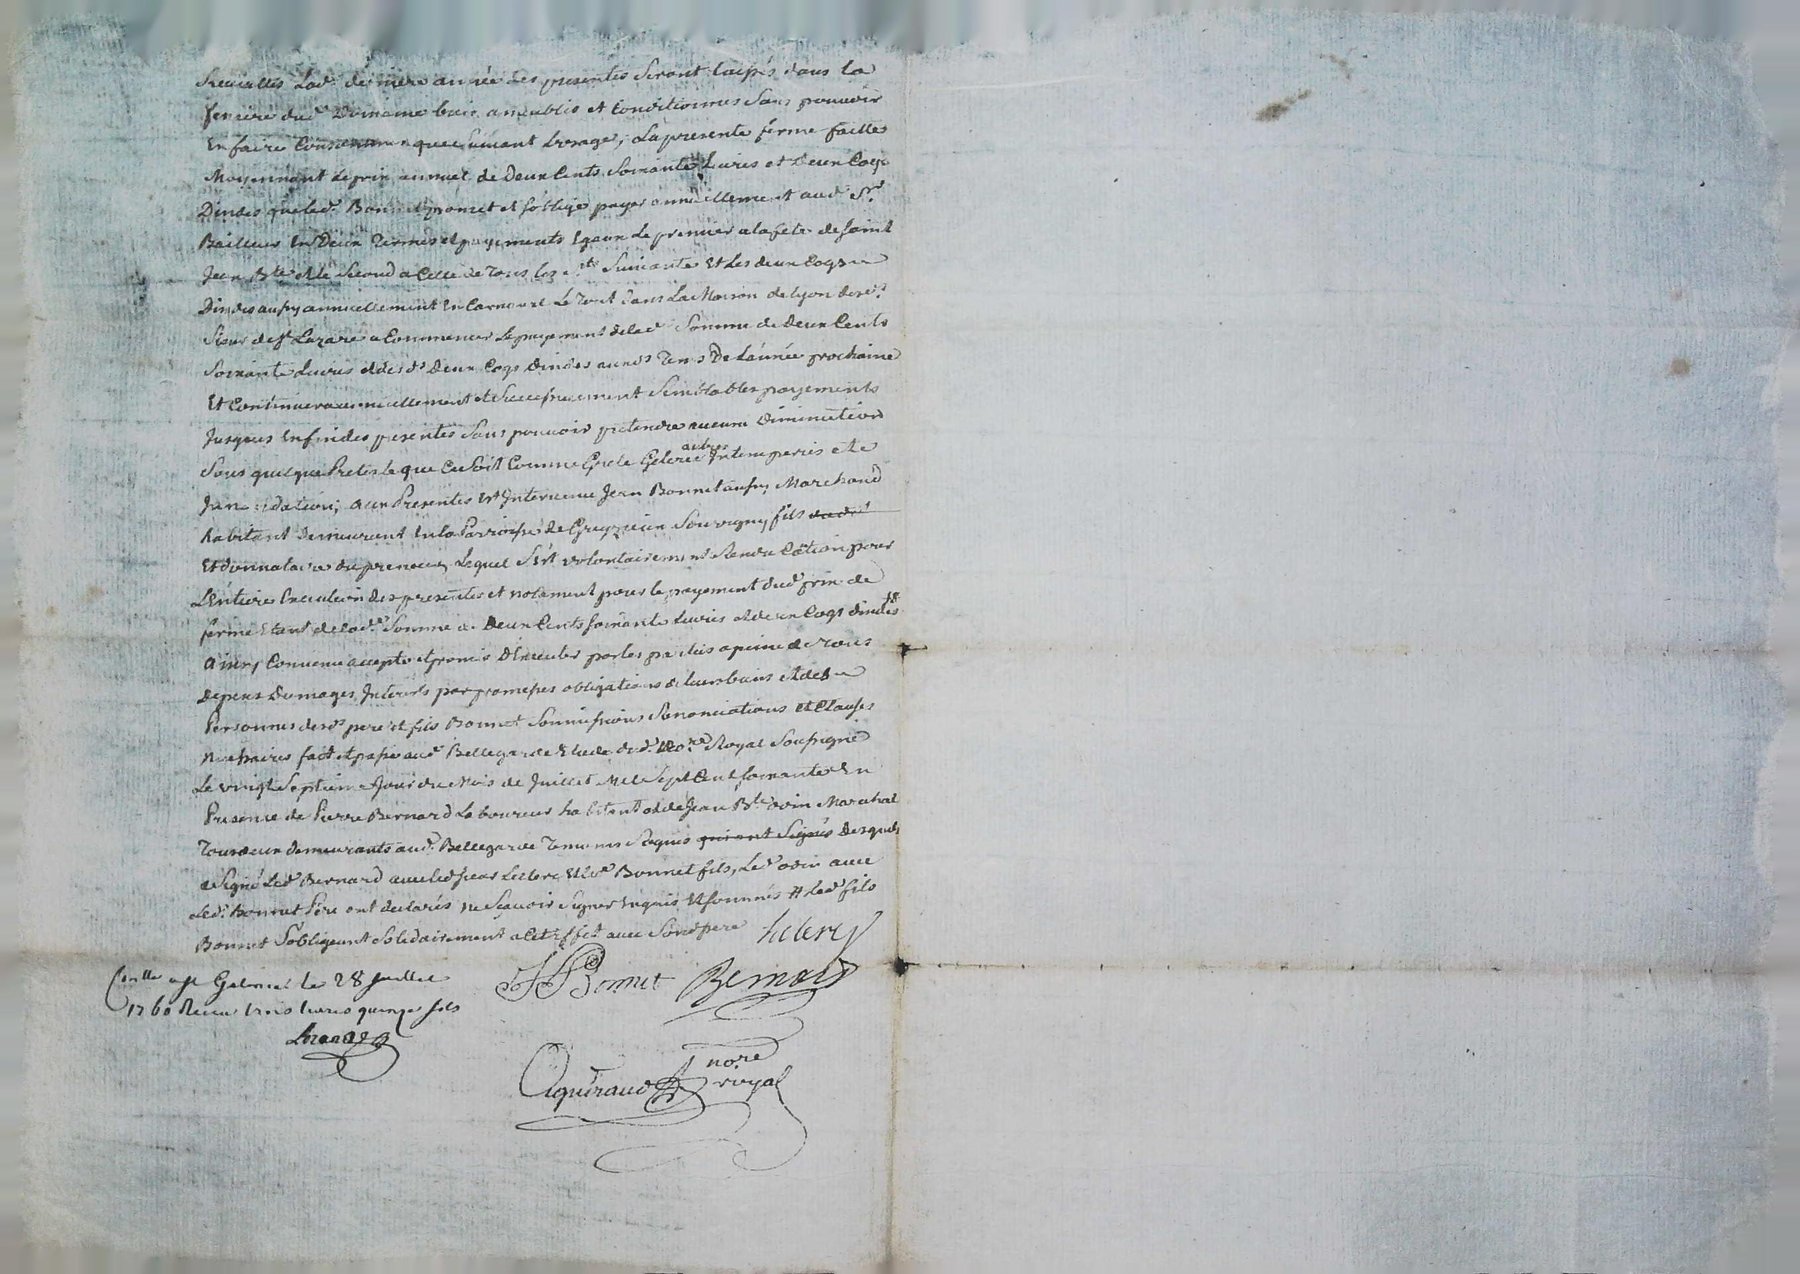 Recueillis lad.e derniere année des presentes Seront laissés dans la
feniere dud. Domaine bien ameublis et Conditionnes Sans pouvoir
En faire que Suivant Lusage, La presente ferme faittes
Moyennant Le prix annuel de Deux Cents Soixante Livres et Deux Coqs
Dindes que led. Bonnet promet et soblige payer annuellement aud. Sr.
Bailleur En Deux Termes et payements Egaux Le premier a la fete de Saint
Jean Bte et le Second a Celle de Tous les Sts Suivante Et Les deux Coqs
Dindes aussy annuellement En Carnaval Le Tout dans La Maison de Lyon dud.
Sieur de St Lazare a Commencer Le payement de lad. Somme de Deux Cents
Soixante Livres et desds Deux Coqs Dindes auxds Tems De Lannée prochaine
Et Continuera annuellement et Successivement Semblables payements
Jusques En fin des presentes Sans pouvoir pretendre aucune Diminution
Sous quelque Pretexte que Ce Soit Comme Grele Gelée autres Intemperies et
Innondation; aux Presentes Est Intervenu Jean Bonnet aussy Marchand
habitant Demeurant En la Parroisse de Souvigny fils
Et donnataire du preneur, Lequel S'est volontairement Rendu Cãtion pour
L'Entiere Execution des presentes et notament pour le payement dud. prix de
ferme Etant de lad.e Somme de Deux Cents soixante Livres et deux Coqs dindes #
Ainsy Convenu accepté et promis D'Executer par les parties a peine de Tous
Depens Domages Interests par promesses obligations de leurs biens et des
Personnes desds pere et fils Bonnet Soumissions Renonciations et Clauses
Necessaires fait et passé aud. Bellegarde Etude dud. Nore. Royal Soussigné
Le vingt Septieme Jour du Mois de Juillet Mil Sept Cent soixante En
Presence de Pierre Bernard Laboureur habitant et de Jean Bte odin Marechal
Tous deux demeurants aud. Bellegarde Temoins Requis qui ont Signés Desquels
a Signé Led. Bernard avec led. sieur Leclerc Et led. Bonnet fils, Led. odin avec
Led. Bonnet Pere ont declarés ne Sçavoir Signer Enquis Et sommés # led. fils
Bonnet S'obligeant Solidairement a Cet Effet avec Sond. pere Leclerc
JJ Bonnet Bernard
Conllé a St Galmier le 28 Juillet
1760 Recu trois livres quinze sols
nore.
royal